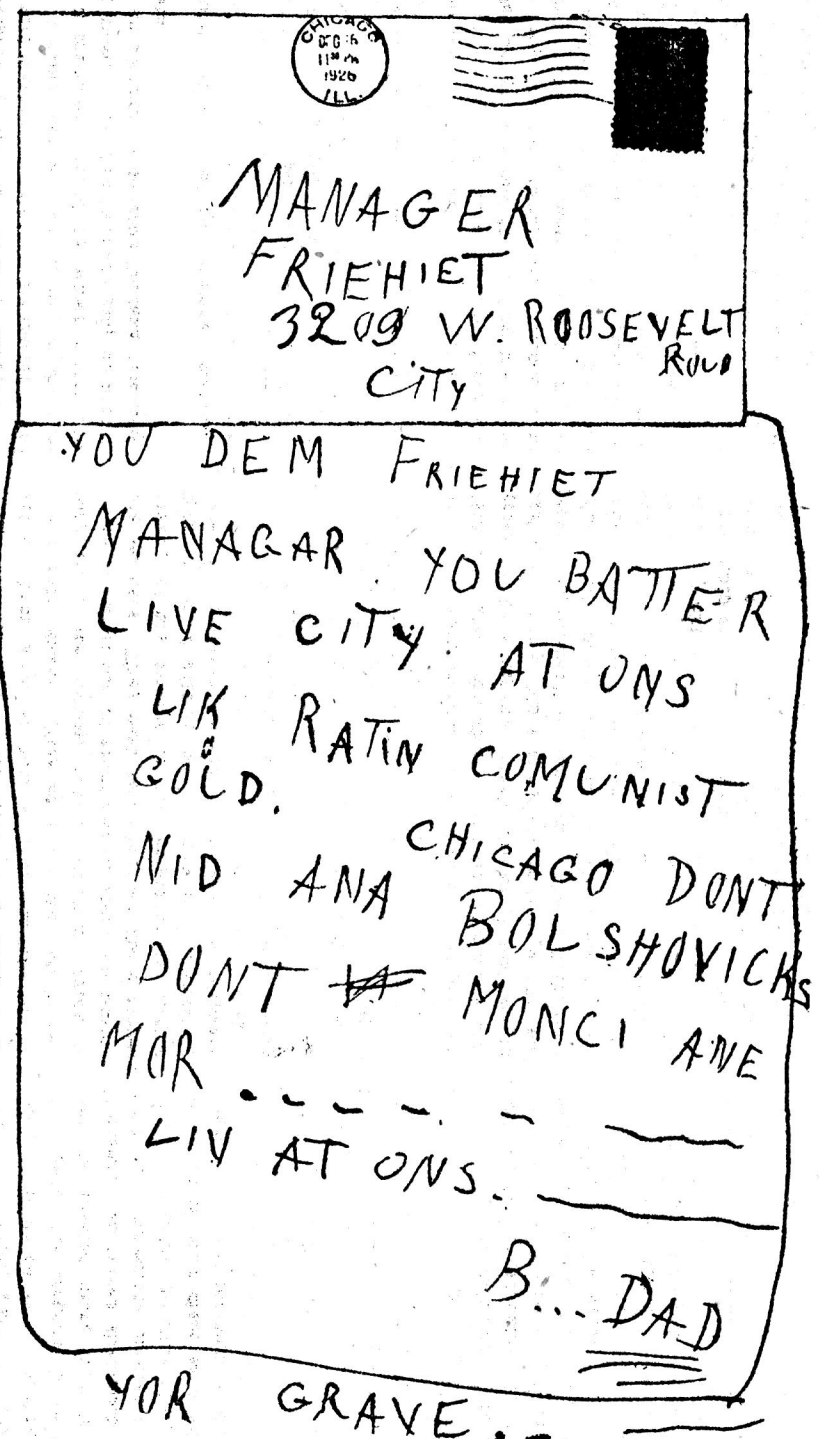 CHICAGO
DEC 6
11 30 PM
1926
ILL.
MANAGER
FRIEHIET
3209 W. ROOSEVELT
CITY
YOU DEM FRIEHIET
MANAGAR. YOU BATTER
LIVE CITY. AT ONS
LIK RATIN COMUNIST
GOLD.
CHICAGO DONT
NID ANA BOLSHOVICKS
DONT MONCI ANE
MOR
LIV AT ONS.
B... DAD
YOR GRAVE.